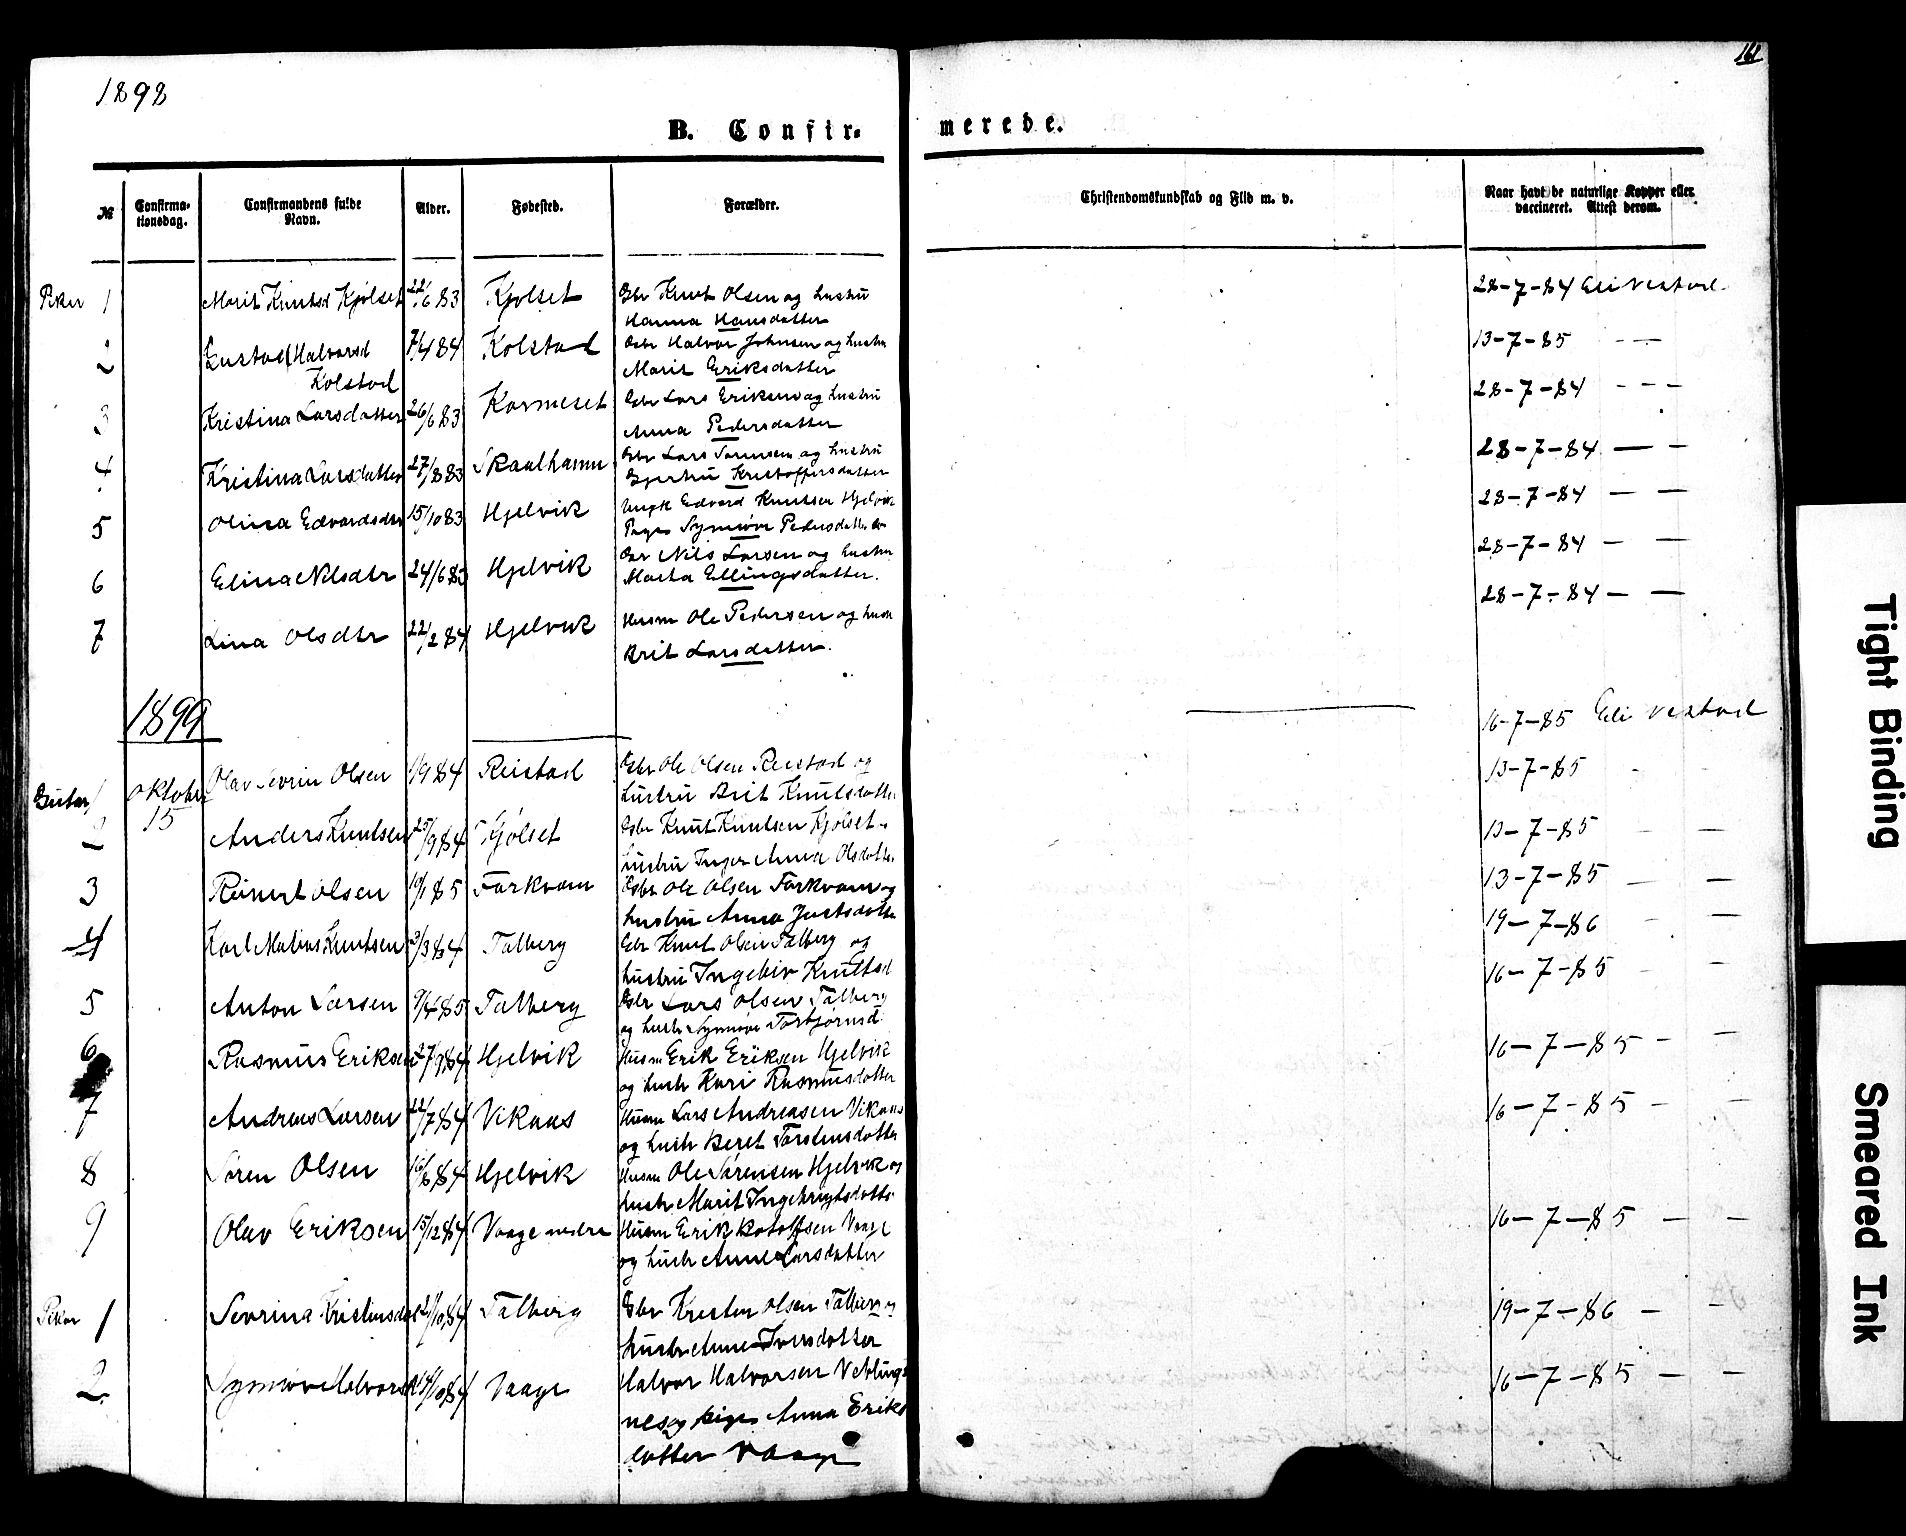 1898
161
B. Confir-
merede.
№
Confirma-
tionsdag.
Confirmandens fulde
Navn.
Alder.
Fødested.
Forældre.
Christendomskundskab og Flid m. v.
Naar havt de naturlige Kopper eller
vaccineret. Attest derom.
Piker 1 Marit Knutsd Kjølset 22/6 83 Kjølset Gbr Knut Olsen og hustru
Hanna Hansdatter
28-7-84 Eli Vestad
2 Gustad Halvorsd 7/4 84 Kolstad Gbr Halvor Johnsen og hustru
Kolstad Marit Eriksdatter
13-7-85 — —
3 Kristina Larsdatter 26/6 83 Kormeset Gbr Lars Eriksen og hustru
Anna Pedersdatter
28-7-84 — — —
4 Kristina Larsdatter 27/8 83 Skaalhamn Gbr Lars og hustru
Gjertru Kristoffersdatter
28-7-84 — —
5 Olina Edvardsdtr 15/10 83 Hjelvik Ungk Edvard Knutsen Hjelvik
Synnøve Pedersdatter
28-7-84 — —
6 Elina Nilsdtr 24/6 83 Hjelvik Gbr Nils Larsen og hustru
Marta Ellingsdatter.
28-7-84 — —
7 Lina Olsdtr 22/2 84 Hjelvik Husm Ole Pedersen og hust
Brit Larsdatter.
28-7-84 — —
1899
Gutar 1 Oktober Olav Sevrin Olsen 1/9 84 Reistad Gbr Ole Olsen Reistad og
15 hustru Brit Knutsdatter
16-7-85 Eli Vestad
2 Anders Knutsen 25/9 84 Kjølset Gbr Knut Knutsen Kjølset
hustru Inger Anna Olsdatter
13-7-85
3 Reinert Olsen 19/1 85 Torkvam Gbr Ole Olsen Torkvam og
hustru Anna Justsdatter
13-7-85 — —
4 Karl Matias Knutsen 3/3 84 Talberg Gbr Knut Olsen Talberg og
hustru Ingebir Knutsd
13-7-85 — —
5 Anton Larsen 9/4 85 Talberg Gbr Lars Olsen Talberg
og hustr Synnøve Torbjørnsd
19-7-86 — —
6 Rasmus Eriksen 27/9 84 Hjelvik Husm Erik Eriksen Hjelvik
og hustr Kari Rasmusdatter
16-7-85 — —
7 Andreas Larsen 22/7 84 Vikaas Husm Lars Andreasen Vikaas
og hustr Beret Torstensdatter
16-7-85 — —
8 Søren Olsen 16/6 84 Hjelvik Husm Ole Sørensen Hjelvik og
hustr Marit Ingebrigtsdatter
16-7-85 — —
9 Olav Eriksen 15/12 84 Vaage nedre Husm Erik Botolfsen Vaage
og hustr Anne Larsdatter
16-7-85 — —
Piker 1 Sevrina Kristensdat 21/10 84 Talberg Gbr Kristen Olsen Talberg og
hustr Anne Iversdatter
19-7-86 — —
2 Synnøve Halvorsd 14/10 84 Vaage Halvor Halvorsen Veblungs
nes og pige Anna Eriks
datter Vaage
16-7-85 — —
Tight Binding
Smeared Ink